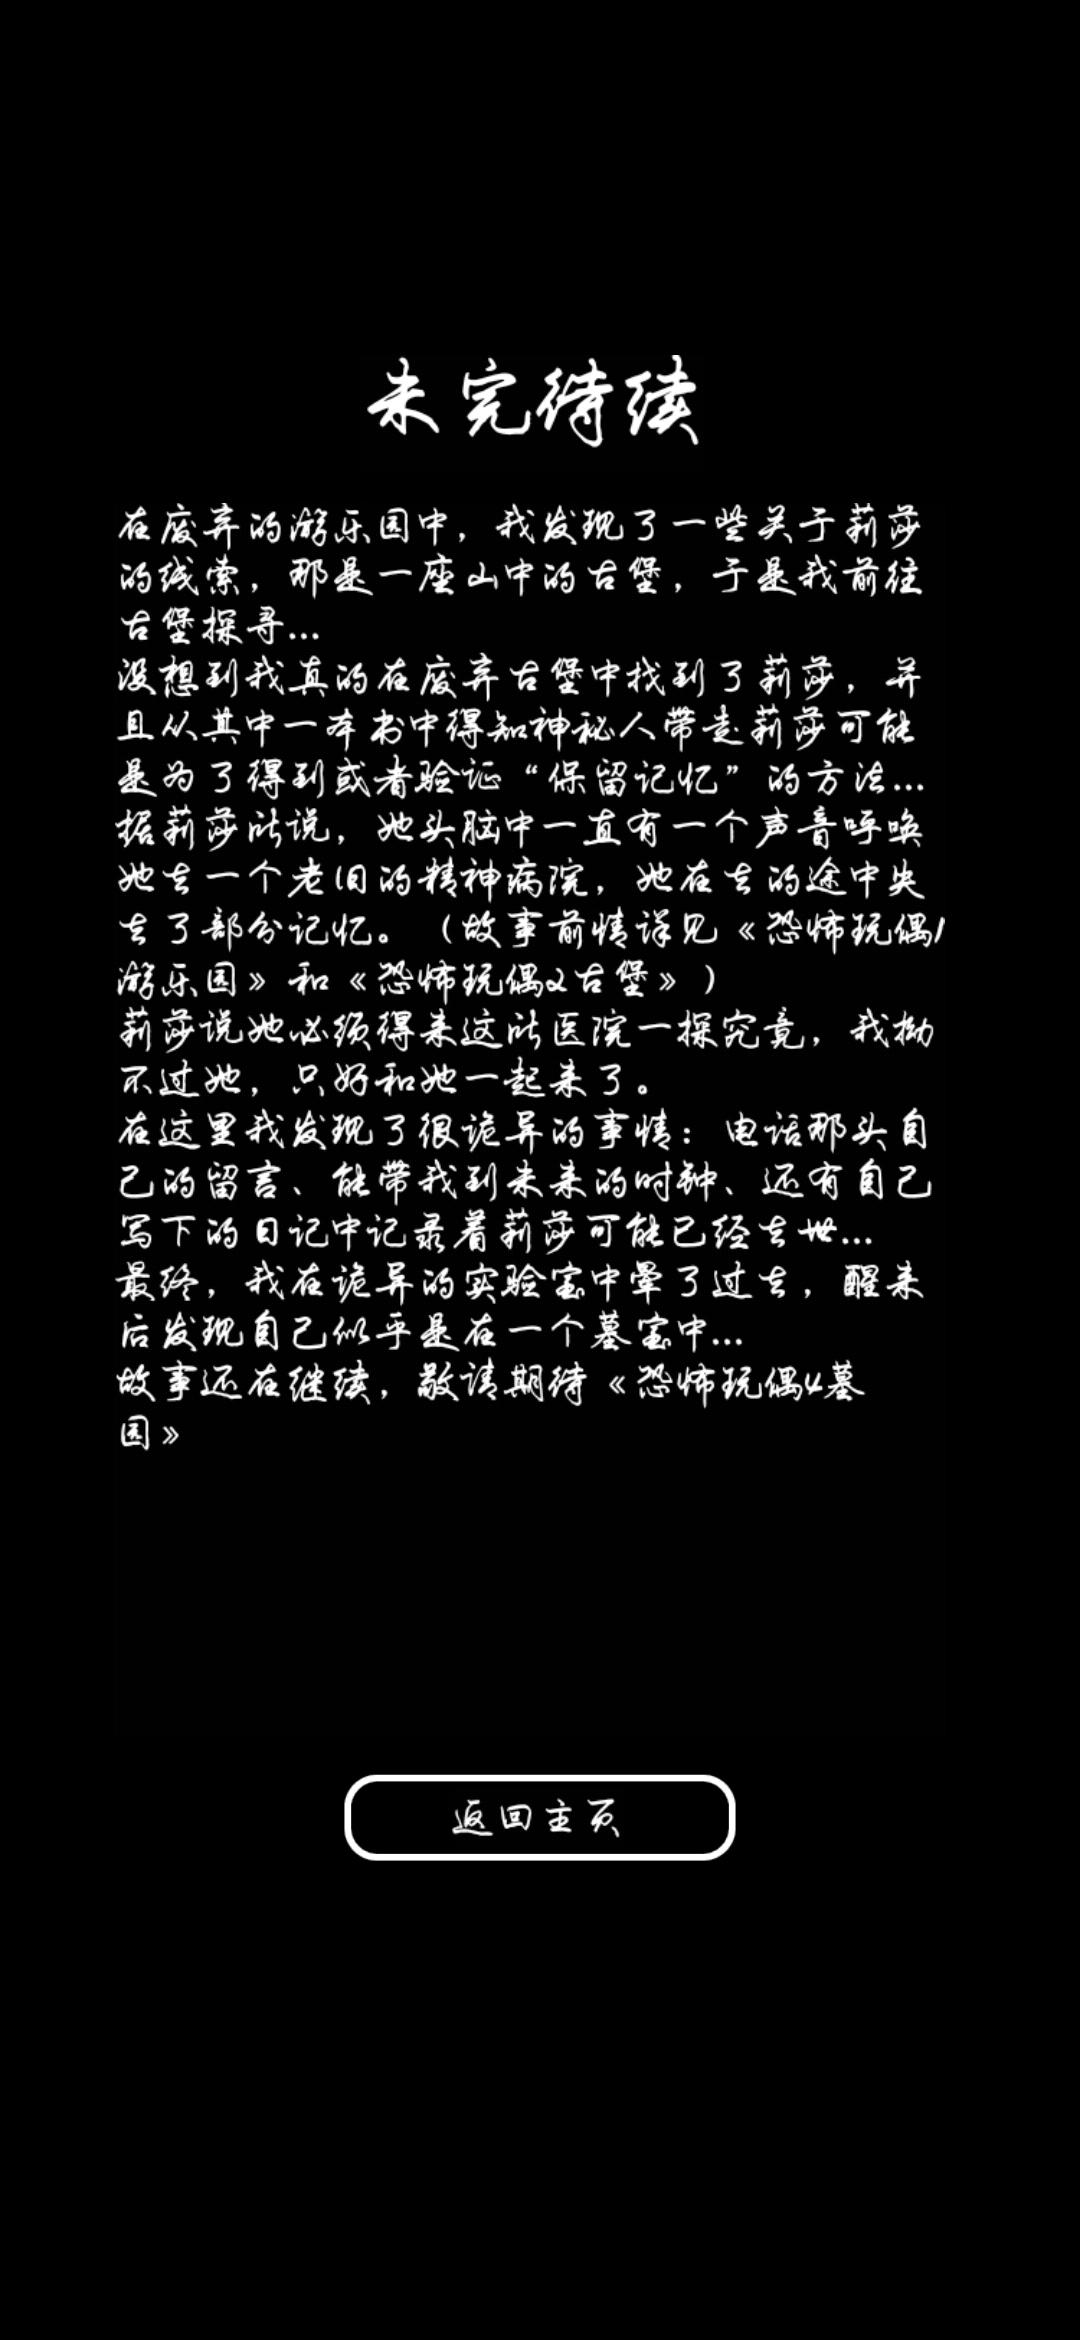 未完待续
在废弃的游乐园中，我发现了一些关于莉莎
的线索，那是一座山中的古堡，于是我前往
古堡探寻...
没想到我真的在废弃古堡中找到了莉莎，并
且从其中一本书中得知神秘人带走莉莎可能
是为了得到或者验证“保留记忆”的方法...
据莉莎所说，她头脑中一直有一个声音呼唤
她去一个老旧的精神病院，她在去的途中失
去了部分记忆。（故事前情详见《恐怖玩偶1
游乐园》和《恐怖玩偶2古堡》）
莉莎说她必须得来这所医院一探究竟，我拗
不过她，只好和她一起来了。
在这里我发现了很诡异的事情：电话那头自
己的留言、能带我到未来的时钟、还有自己
写下的日记中记录着莉莎可能已经去世...
最终，我在诡异的实验室中晕了过去，醒来
后发现自己似乎是在一个墓室中...
故事还在继续，敬请期待《恐怖玩偶4墓
园》
返回主页